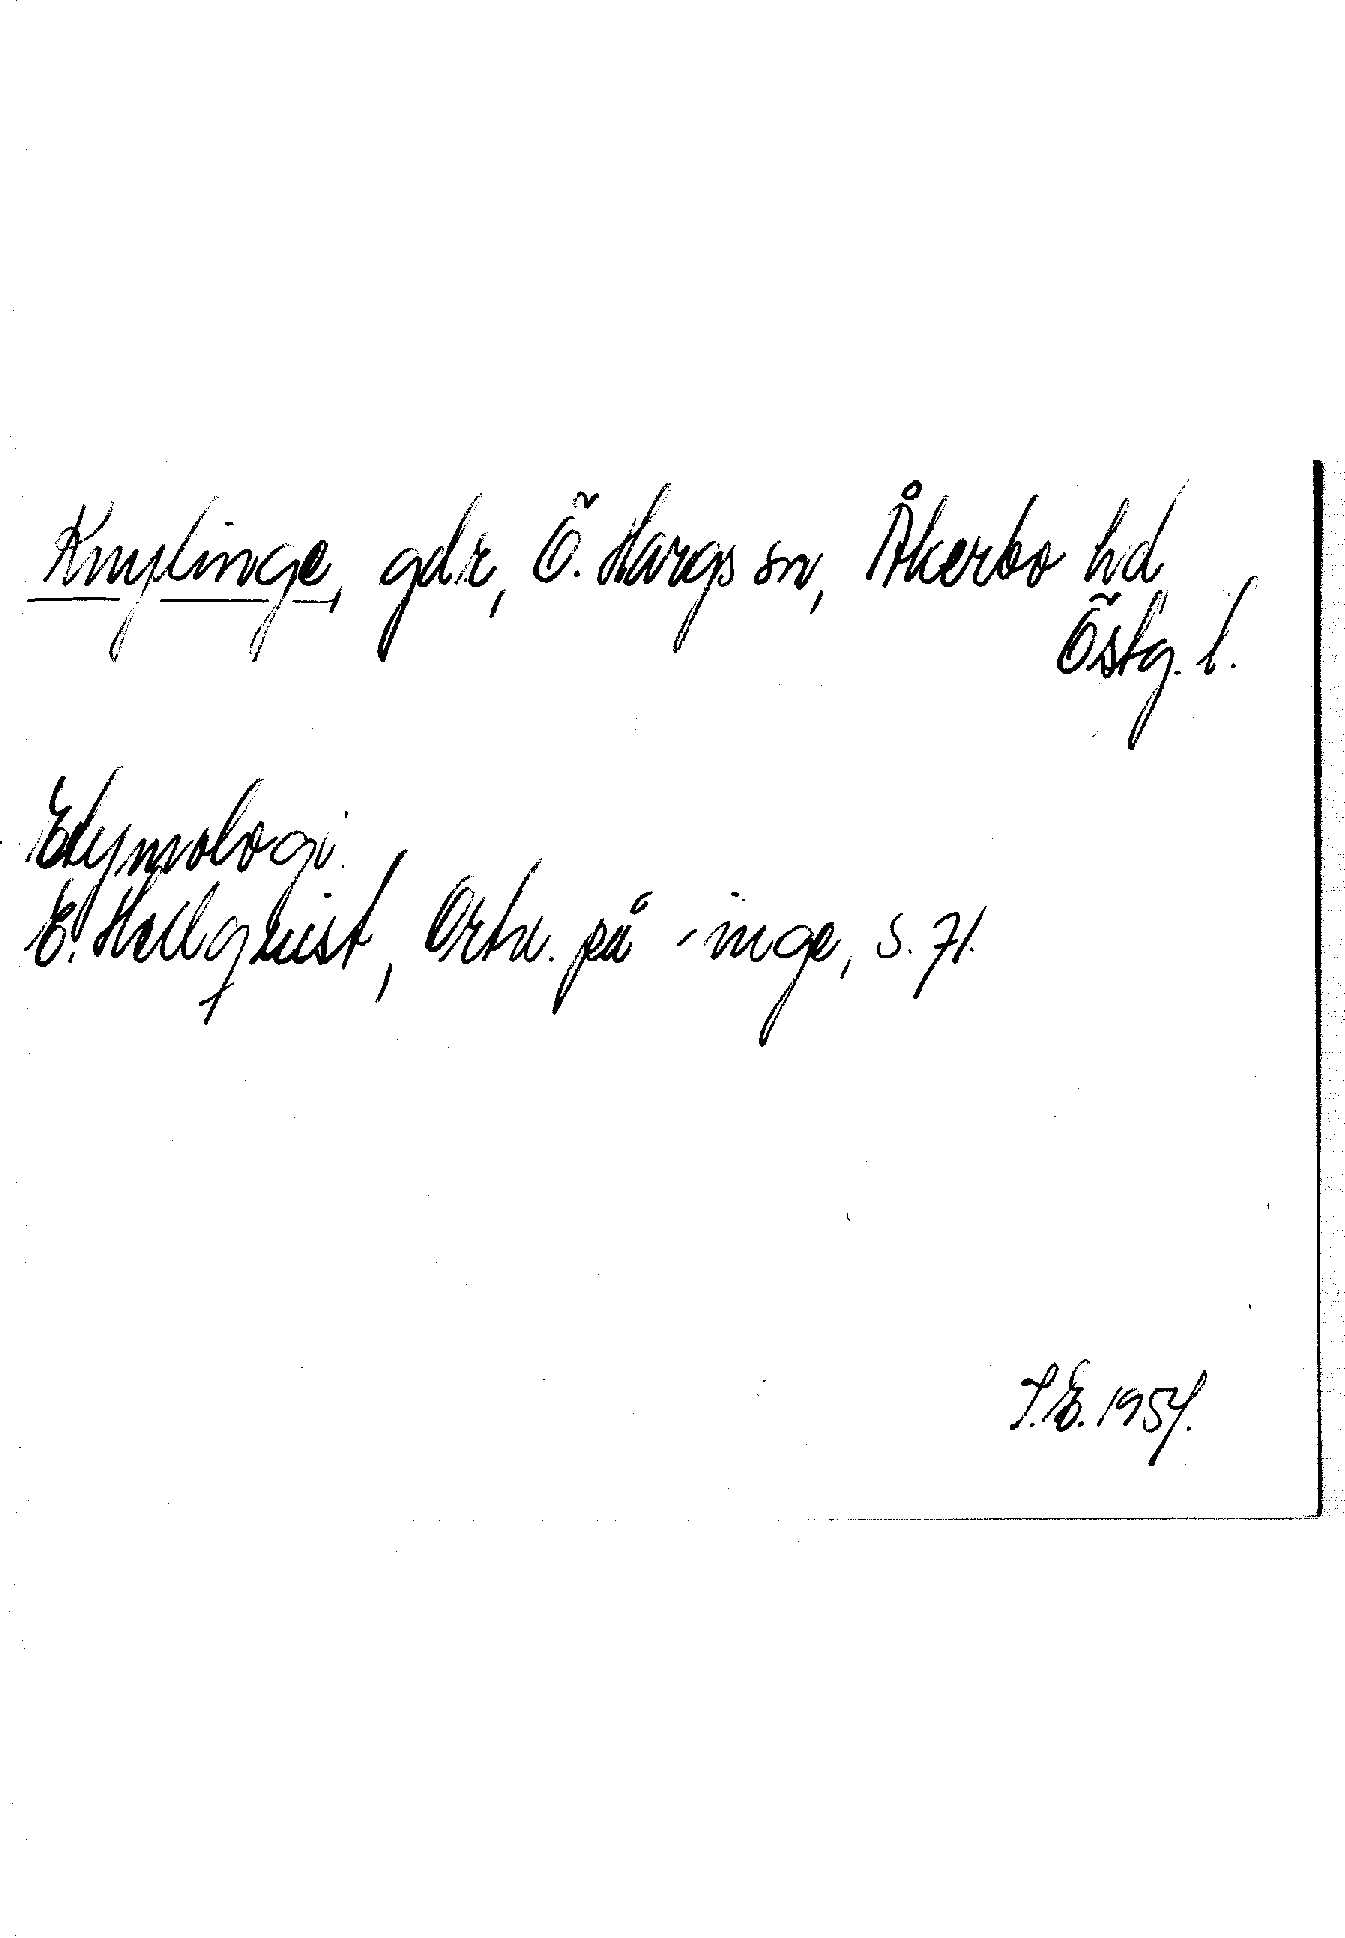 Knylinge, gdr, Ö. Hargs sn, Åkerbo hd
Östg. l.
Etymologi.
E. Hellquist, Ortn. på -inge, s. 71.
S.E. 1957.